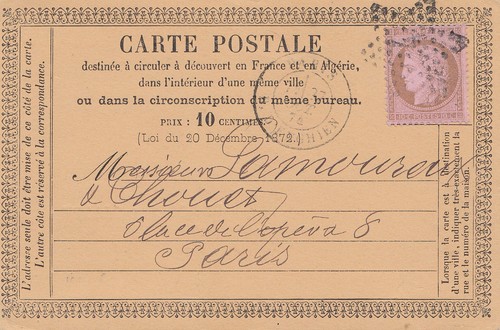 CARTE POSTALE
destinée à circuler à découvert en France et en Algérie,
dans l'intérieur d'une même ville
ou dans la circonscription du même bureau.
PRIX : 10 CENTIMES
(Loi du 20 Décembre 1872.)
Monsieur Lamoureu
& Chouet
place de l'opéra 8
Paris
L'adresse seule doit être mise de ce côté de la carte.
L'autre côté est réservé à la correspondance.
Lorsque la carte est à destination
d'une ville, indiquer très-exactement la
rue et le numéro de la maison.